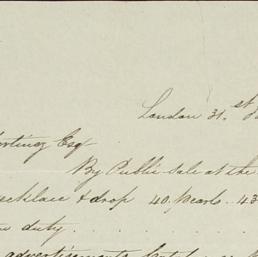 London 31.st
Esqr
By Public Sale at the
necklace & drop 40. pearls. 43
duty. . . . . .
advertisements